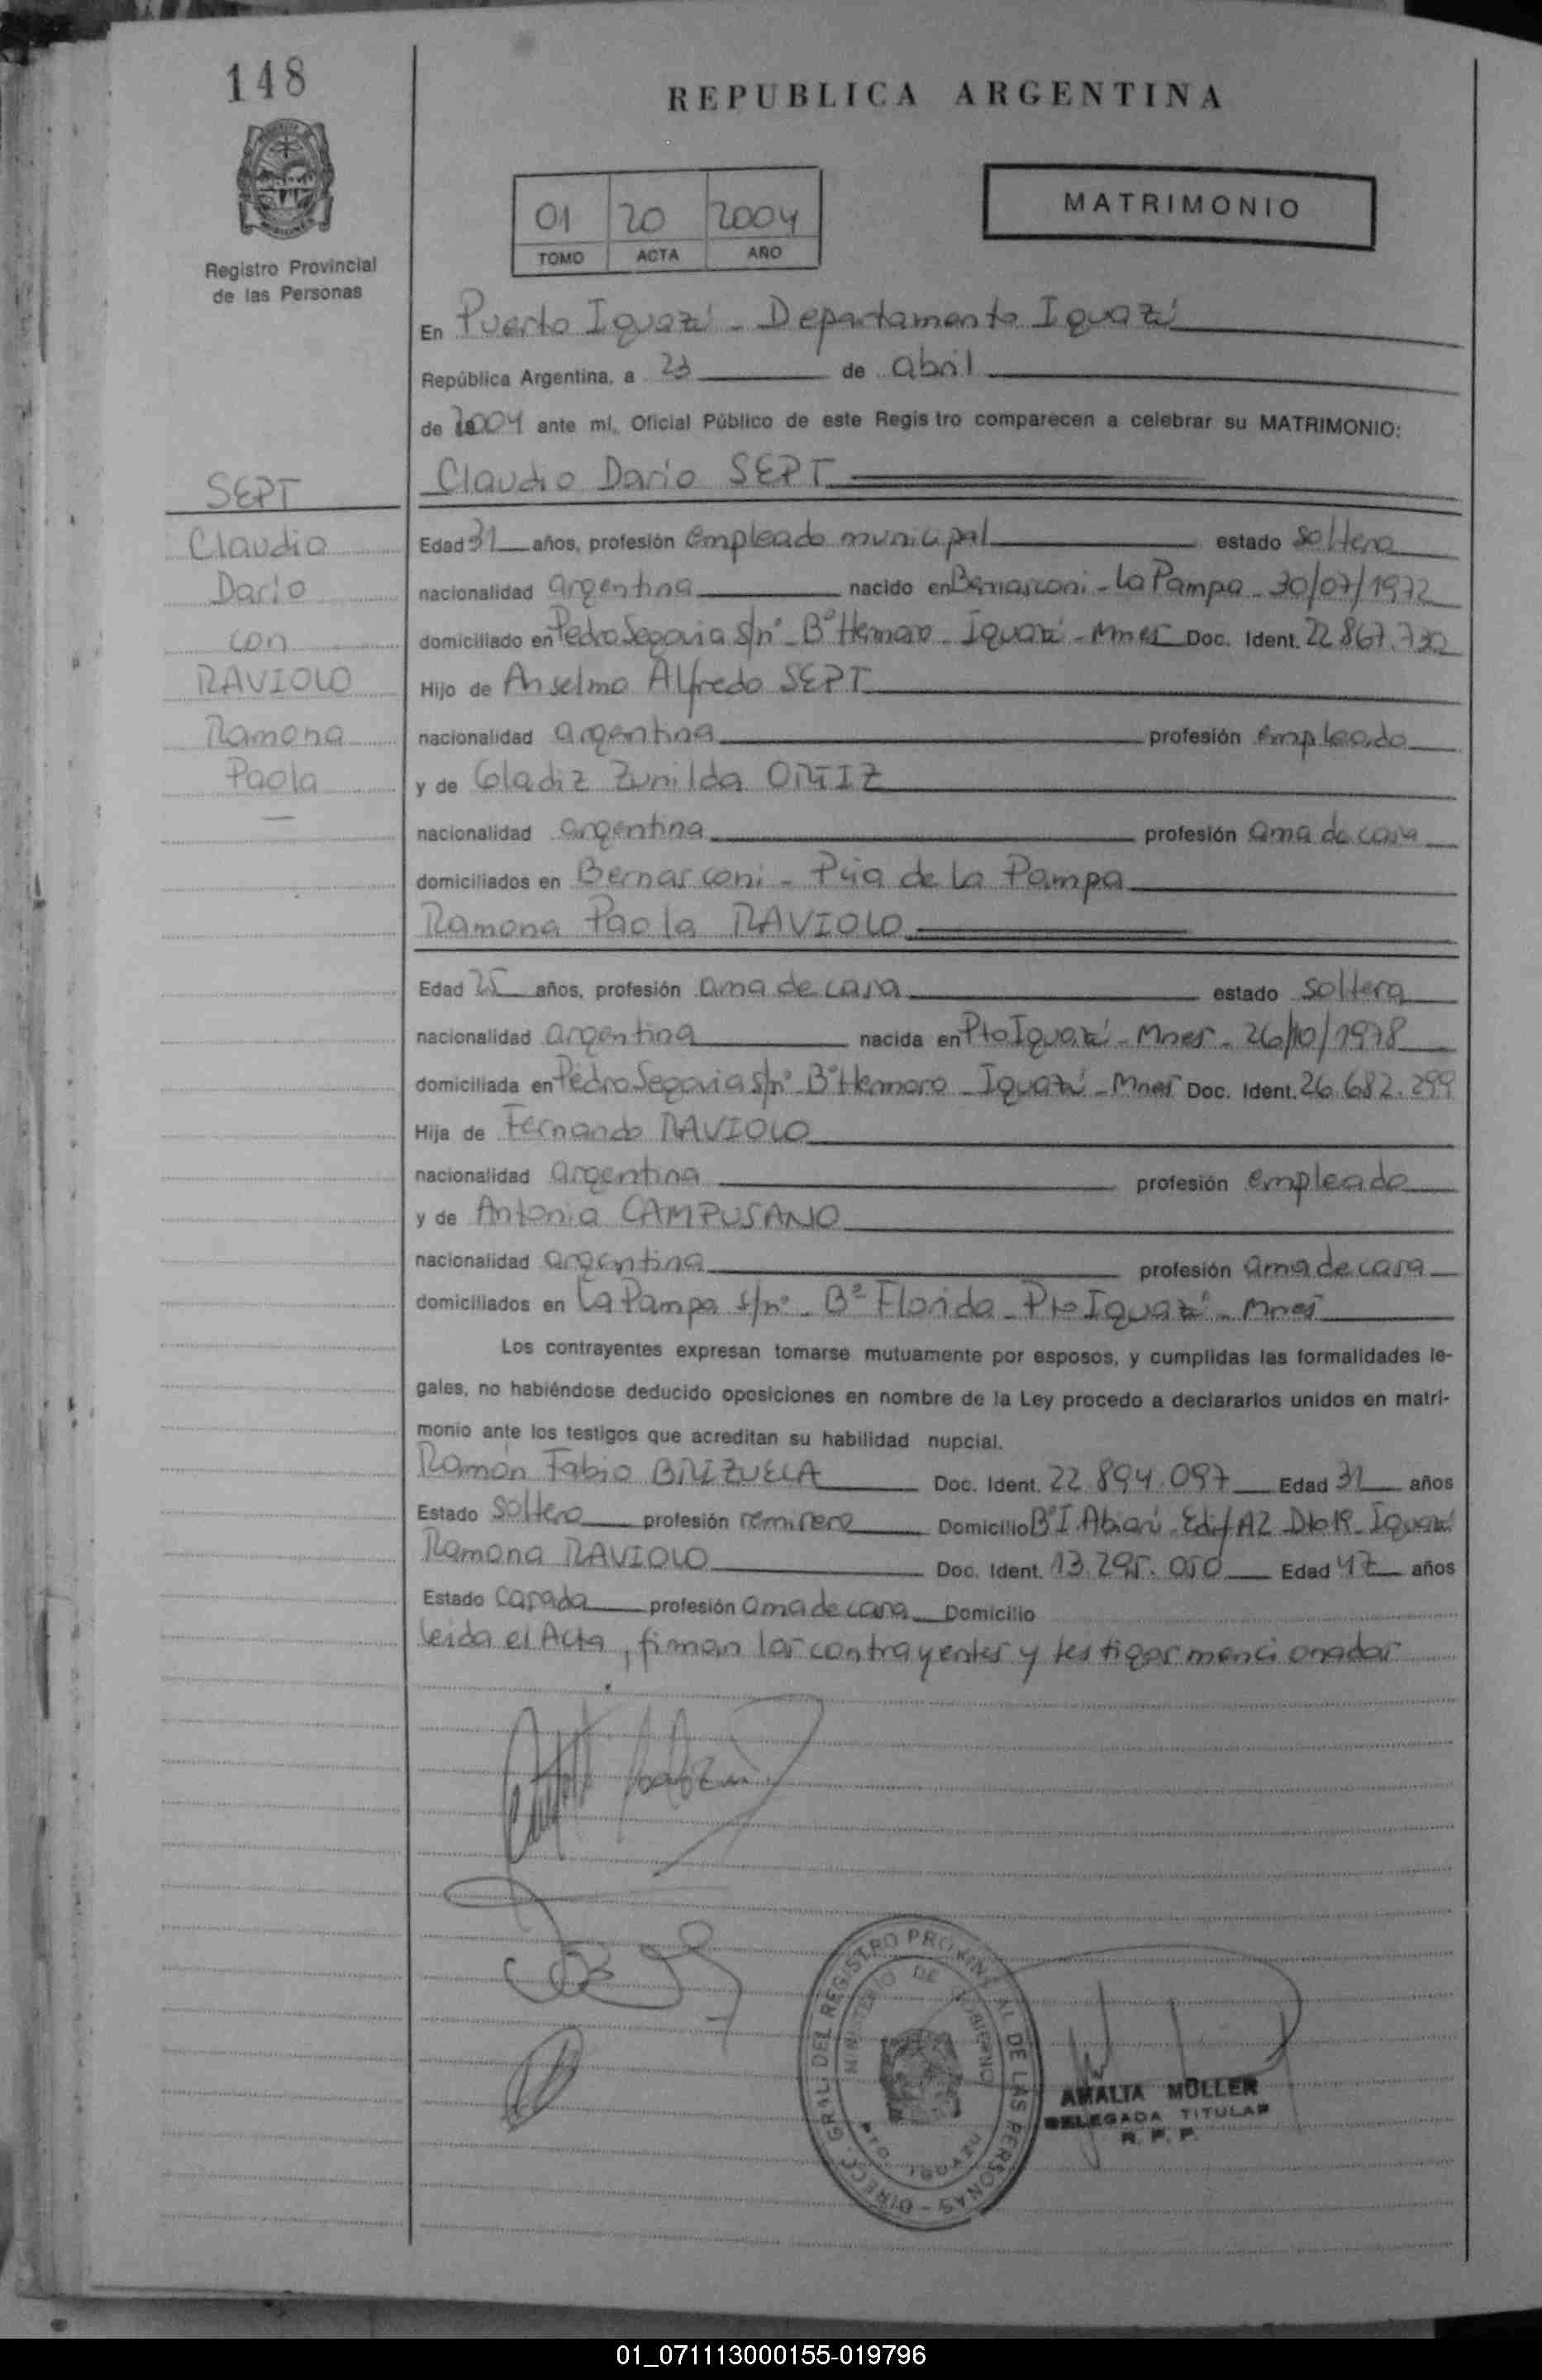 148
REPUBLICA ARGENTINA
MATRIMONIO
01 20 2004
TOMO ACTA AÑO
Registro Provincial
de las Personas
En Puerto Iguazú - Departamento Iguazú
República Argentina, a 23 de abril
de 2004 ante mí, Oficial Público de este Registro comparecen a celebrar su MATRIMONIO:
SEPT
Claudio
Darío
con
RAVIOLO
Ramona
Paola
Claudio Darío SEPT
Edad 31 años, profesión empleado municipal estado soltero
nacionalidad argentina nacido en Bernasconi - La Pampa - 30/07/1972
domiciliado en Pedro Segovia s/nº - Bº Hermoso - Iguazú - Mnes Doc. Ident. 22.867.732
Hijo de Anselmo Alfredo SEPT
nacionalidad argentina profesión empleado
y de Gladiz Zunilda ORTIZ
nacionalidad argentina profesión ama de casa
domiciliados en Bernasconi - Pcia de La Pampa
Ramona Paola RAVIOLO
Edad 25 años, profesión ama de casa estado soltera
nacionalidad argentina nacida en Pto Iguazú - Mnes - 26/10/1978
domiciliada en Pedro Segovia s/nº - Bº Hermoso - Iguazú - Mnes Doc. Ident. 26.682.299
Hija de Fernando RAVIOLO
nacionalidad argentina profesión empleado
y de Antonia CAMPUSANO
nacionalidad argentina profesión ama de casa
domiciliados en La Pampa s/nº - Bº Florida - Pto Iguazú - Mnes
Los contrayentes expresan tomarse mutuamente por esposos, y cumplidas las formalidades le-
gales, no habiéndose deducido oposiciones en nombre de la Ley procedo a declararlos unidos en matri-
monio ante los testigos que acreditan su habilidad nupcial.
Ramón Fabio BRIZUELA Doc. Ident. 22.894.097 Edad 31 años
Estado soltero profesión remisero Domicilio Bº I. Abiarú Edif A2 Dto 19 Iguazú
Ramona RAVIOLO Doc. Ident. 13.295.050 Edad 47 años
Estado casada profesión ama de casa Domicilio
leida el Acta, firman los contrayentes y testigos mencionados
DIRECC. GRAL. DEL REGISTRO PROVINCIAL DE LAS PERSONAS -
MINISTERIO DE GOBIERNO
PTO. IGUAZU
AMALIA MOLLER
DELEGADA TITULAR
R. P. P.
01_071113000155-019796